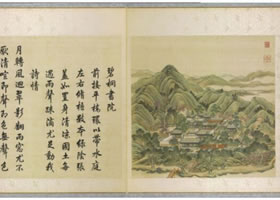 碧桐書院
前接平橋環以帶水庭
左右修梧數本綠陰張
蓋如置身清涼國土每
遇雨聲疎滴尤足動我
詩情
月轉風迴翠影翻雨窓尤不
厭清喧即聲即色無聲色